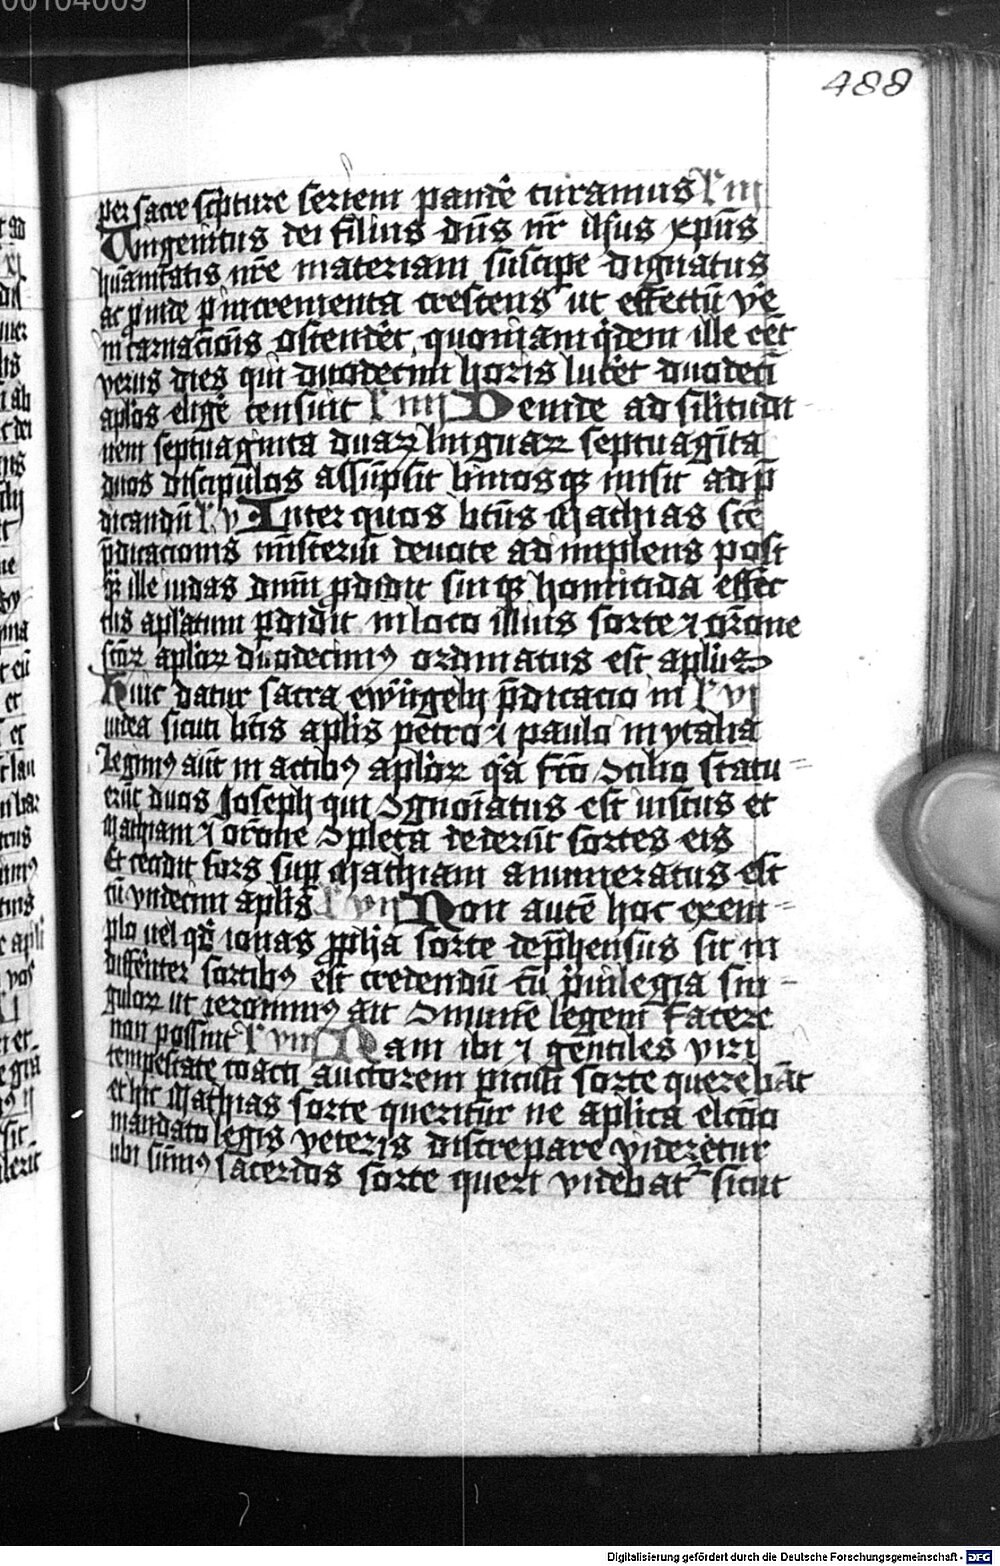 00104009
488
per sacre scpture seriem pandē curamus lc iii
Unigenitus dei filius dūs nr̄ ihsus xpūs
hūanitatis nrē materiam suscipe dignatus
ac ꝓinde ꝑ incrementa crescens ut effectū ve
incarnacōis ostendēt quoniam qdem ille cēt
verus dies qui duodecim horis lucēt duodecī
aplōs eligē censuit lc iiii Deinde ad silitudi
nem septuaginta duaꝝ linguaꝝ septuagīta
duos discipulos assūpsit binosqꝫ misit ad p̄
dicandū lc v Inter quos btūs Mathias scē
p̄dicacionis misteriū deuote adimplens post
qꝫ ille iudas dnm̄ ꝓdidit suiqꝫ homicida effec
tus aplatum ꝑdidit in loco illius sorte ⁊ orōne
scōꝝ aploꝝ duodecimꝯ ordinatus est aplus
Huic datur sacra ewāgelii p̄dicacio in lc vi
iudea sicuti btīs aplis petro ⁊ paulo in ytalia
Legimꝯ aūt in actibꝯ aploꝝ qa fcō ↄcilio statu-
erūt duos Joseph qui ↄgnoīatus est iustus et
Mathiam ⁊ orōne ↄpleta dederūt sortes eis
Et cecidit sors sup Mathiam annumeratus est
cū vndecim aplis lc vii Non autē hoc exem-
plo uel qd ionas ꝓpha sorte dep̄hensus sit in
differnter sortibꝯ est credendū cū p̄uilegia sin-
guloꝝ ut ieronimꝯ ait ↄmunē legem facere
non possint lc viii Nam ibi ⁊ gentiles viri
tempestate coacti auctorem piculi sorte querebāt
et hic Mathias sorte queritur ne aplica elcīo
mandato legis veteris discrepare viderētur
ubi sūmꝯ sacerdos sorte queri videbat sicut
Digitalisierung gefördert durch die Deutsche Forschungsgemeinschaft - DFG